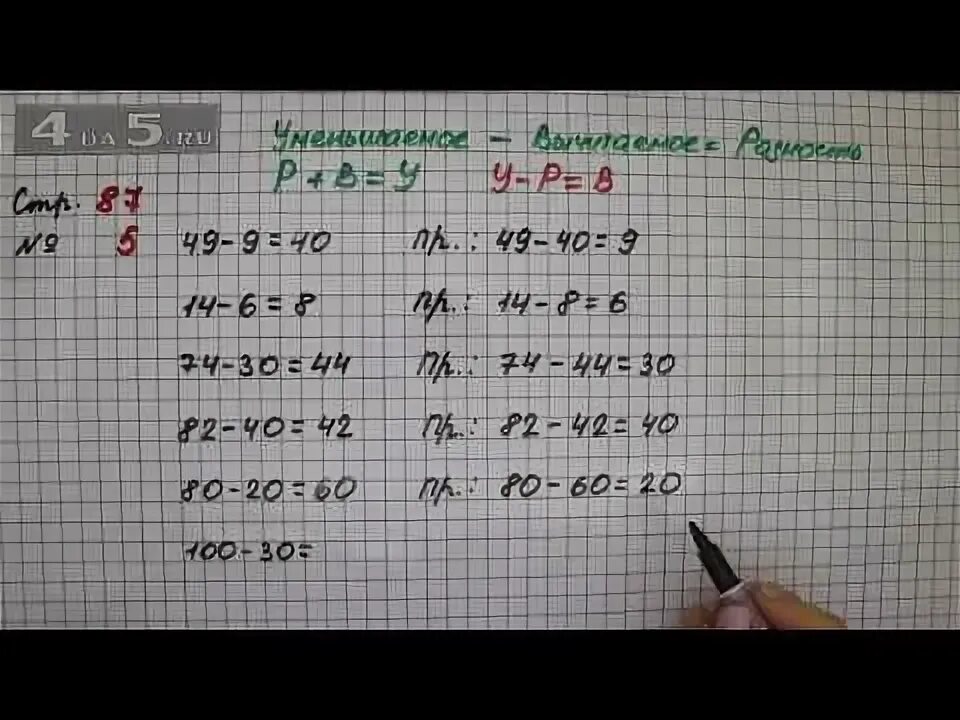 4 НА 5.RU
Уменьшаемое - Вычитаемое = Разность
Р + В = У У - Р = В
Стр. 87
№ 5 49 - 9 = 40 пр.: 49 - 40 = 9
14 - 6 = 8 пр.: 14 - 8 = 6
74 - 30 = 44 пр.: 74 - 44 = 30
82 - 40 = 42 пр.: 82 - 42 = 40
80 - 20 = 60 пр.: 80 - 60 = 20
100 - 30 =